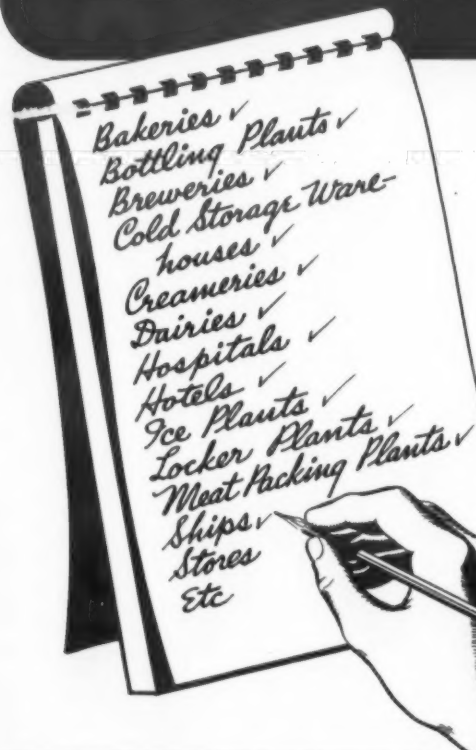 Bakeries ✓
Bottling Plants ✓
Breweries ✓
Cold Storage Ware-
houses ✓
Creameries ✓
Dairies ✓
Hospitals ✓
Hotels ✓
Ice Plants ✓
Locker Plants ✓
Meat Packing Plants ✓
Ships ✓
Stores
Etc